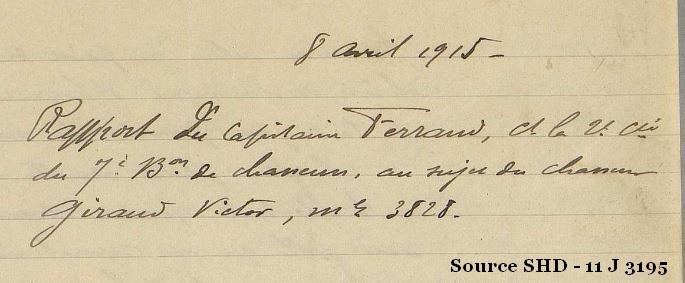 8 avril 1915 -
Rapport du Capitaine Ferrand, Ct la 2e Cie
du 7e Bon de chasseurs, au sujet du chasseur
Giraud Victor, mle 3828.
Source SHD - 11 J 3195